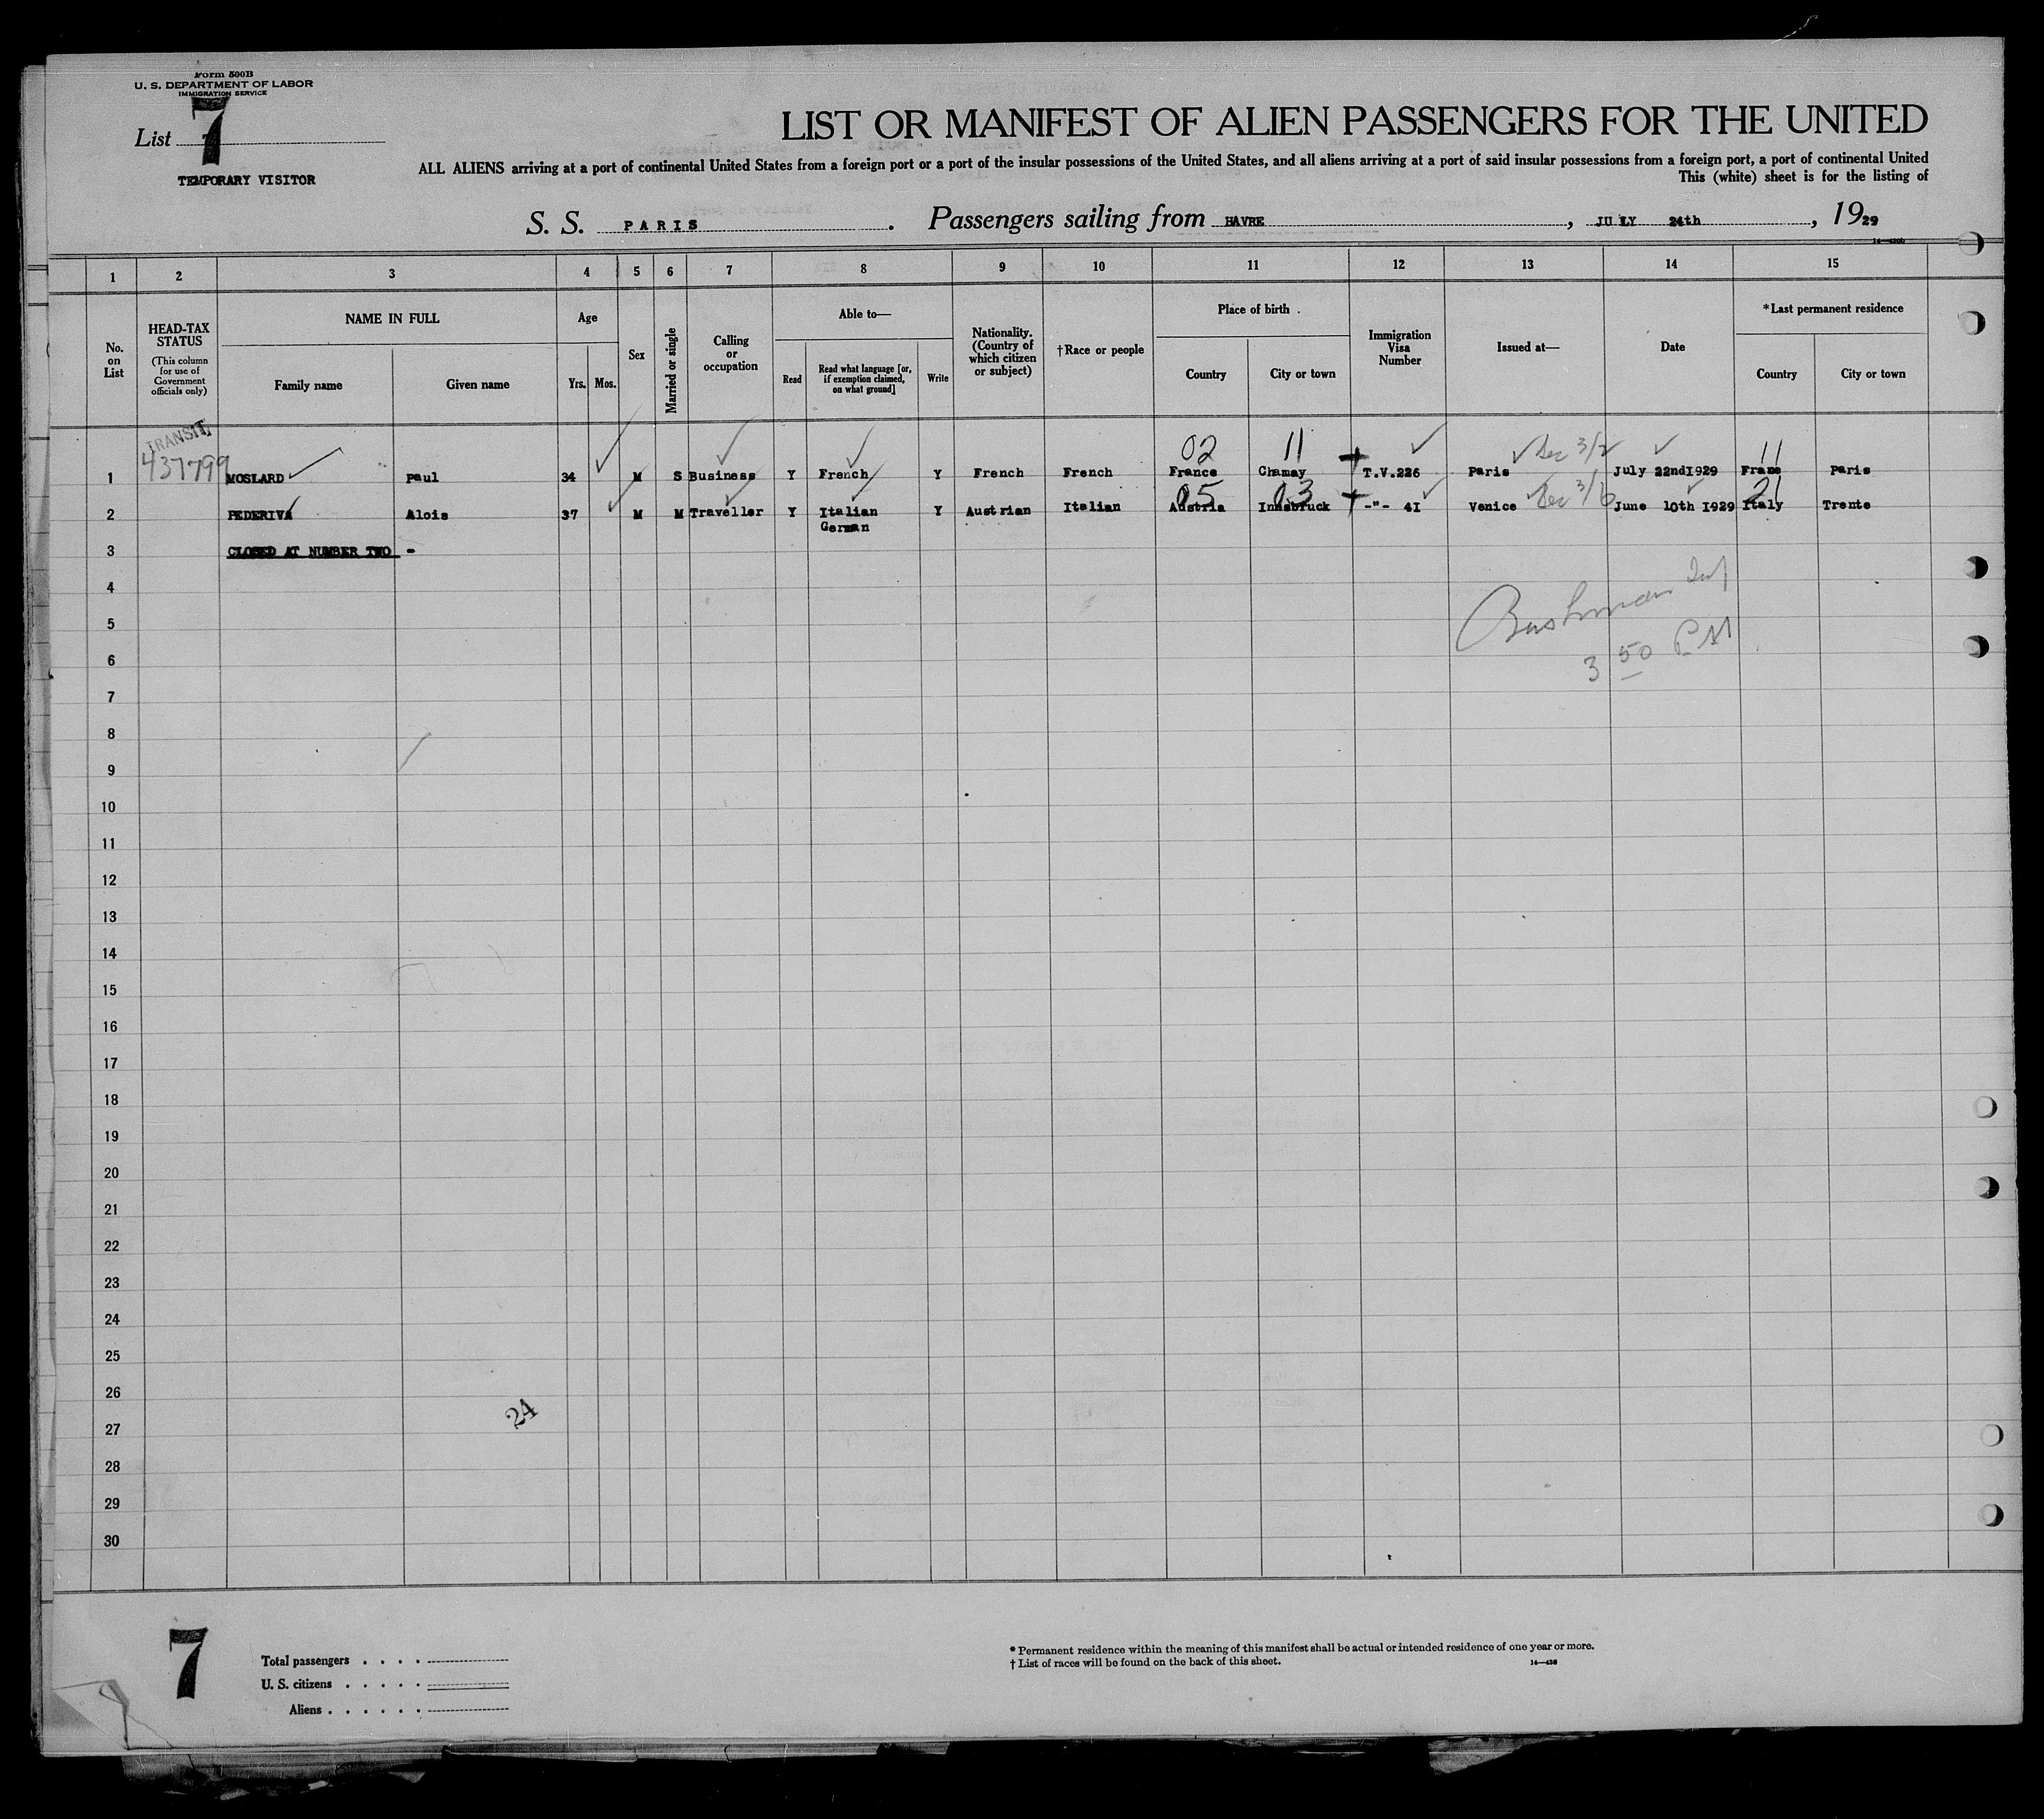 Form 500B
U. S. DEPARTMENT OF LABOR
IMMIGRATION SERVICE
List 7
TEMPORARY VISITOR
LIST OR MANIFEST OF ALIEN PASSENGERS FOR THE UNITED
ALL ALIENS arriving at a port of continental United States from a foreign port or a port of the insular possessions of the United States, and all aliens arriving at a port of said insular possessions from a foreign port, a port of continental United
This (white) sheet is for the listing of
S. S. PARIS. Passengers sailing from HAVRE, JULY 24th, 1929
1 2 3 4 5 6 7 8 9 10 11 12 13 14 15
No. on List
HEAD-TAX STATUS
(This column for use of Government officials only)
NAME IN FULL
Family name Given name
Age
Yrs. Mos.
Sex
Married or single
Calling or occupation
Able to—
Read
Read what language [or, if exemption claimed, on what ground]
Write
Nationality. (Country of which citizen or subject)
†Race or people
Place of birth
Country City or town
Immigration Visa Number
Issued at—
Date
*Last permanent residence
Country City or town
TRANSIT
437799
02 11 Sec 3/2 11
1 MOSLARD Paul 34 M S Business Y French Y French French France Chamay T.V.226 Paris July 22nd1929 Frane Paris
05 03 Sec 3/ 21
2 PEDERIVA Alois 37 M M Traveller Y Italian Y Austrian Italian Austria Innsbruck -"- 4I Venice June 10th 1929 Italy Trente
German
3 CLOSED AT NUMBER TWO -
4
5
Bushman
6
3 50 PM
7
8
9
10
11
12
13
14
15
16
17
18
19
20
21
22
23
24
25
26
24
27
28
29
30
7
Total passengers . . . .
U. S. citizens . . . . .
Aliens . . . . . .
* Permanent residence within the meaning of this manifest shall be actual or intended residence of one year or more.
† List of races will be found on the back of this sheet.
14—430